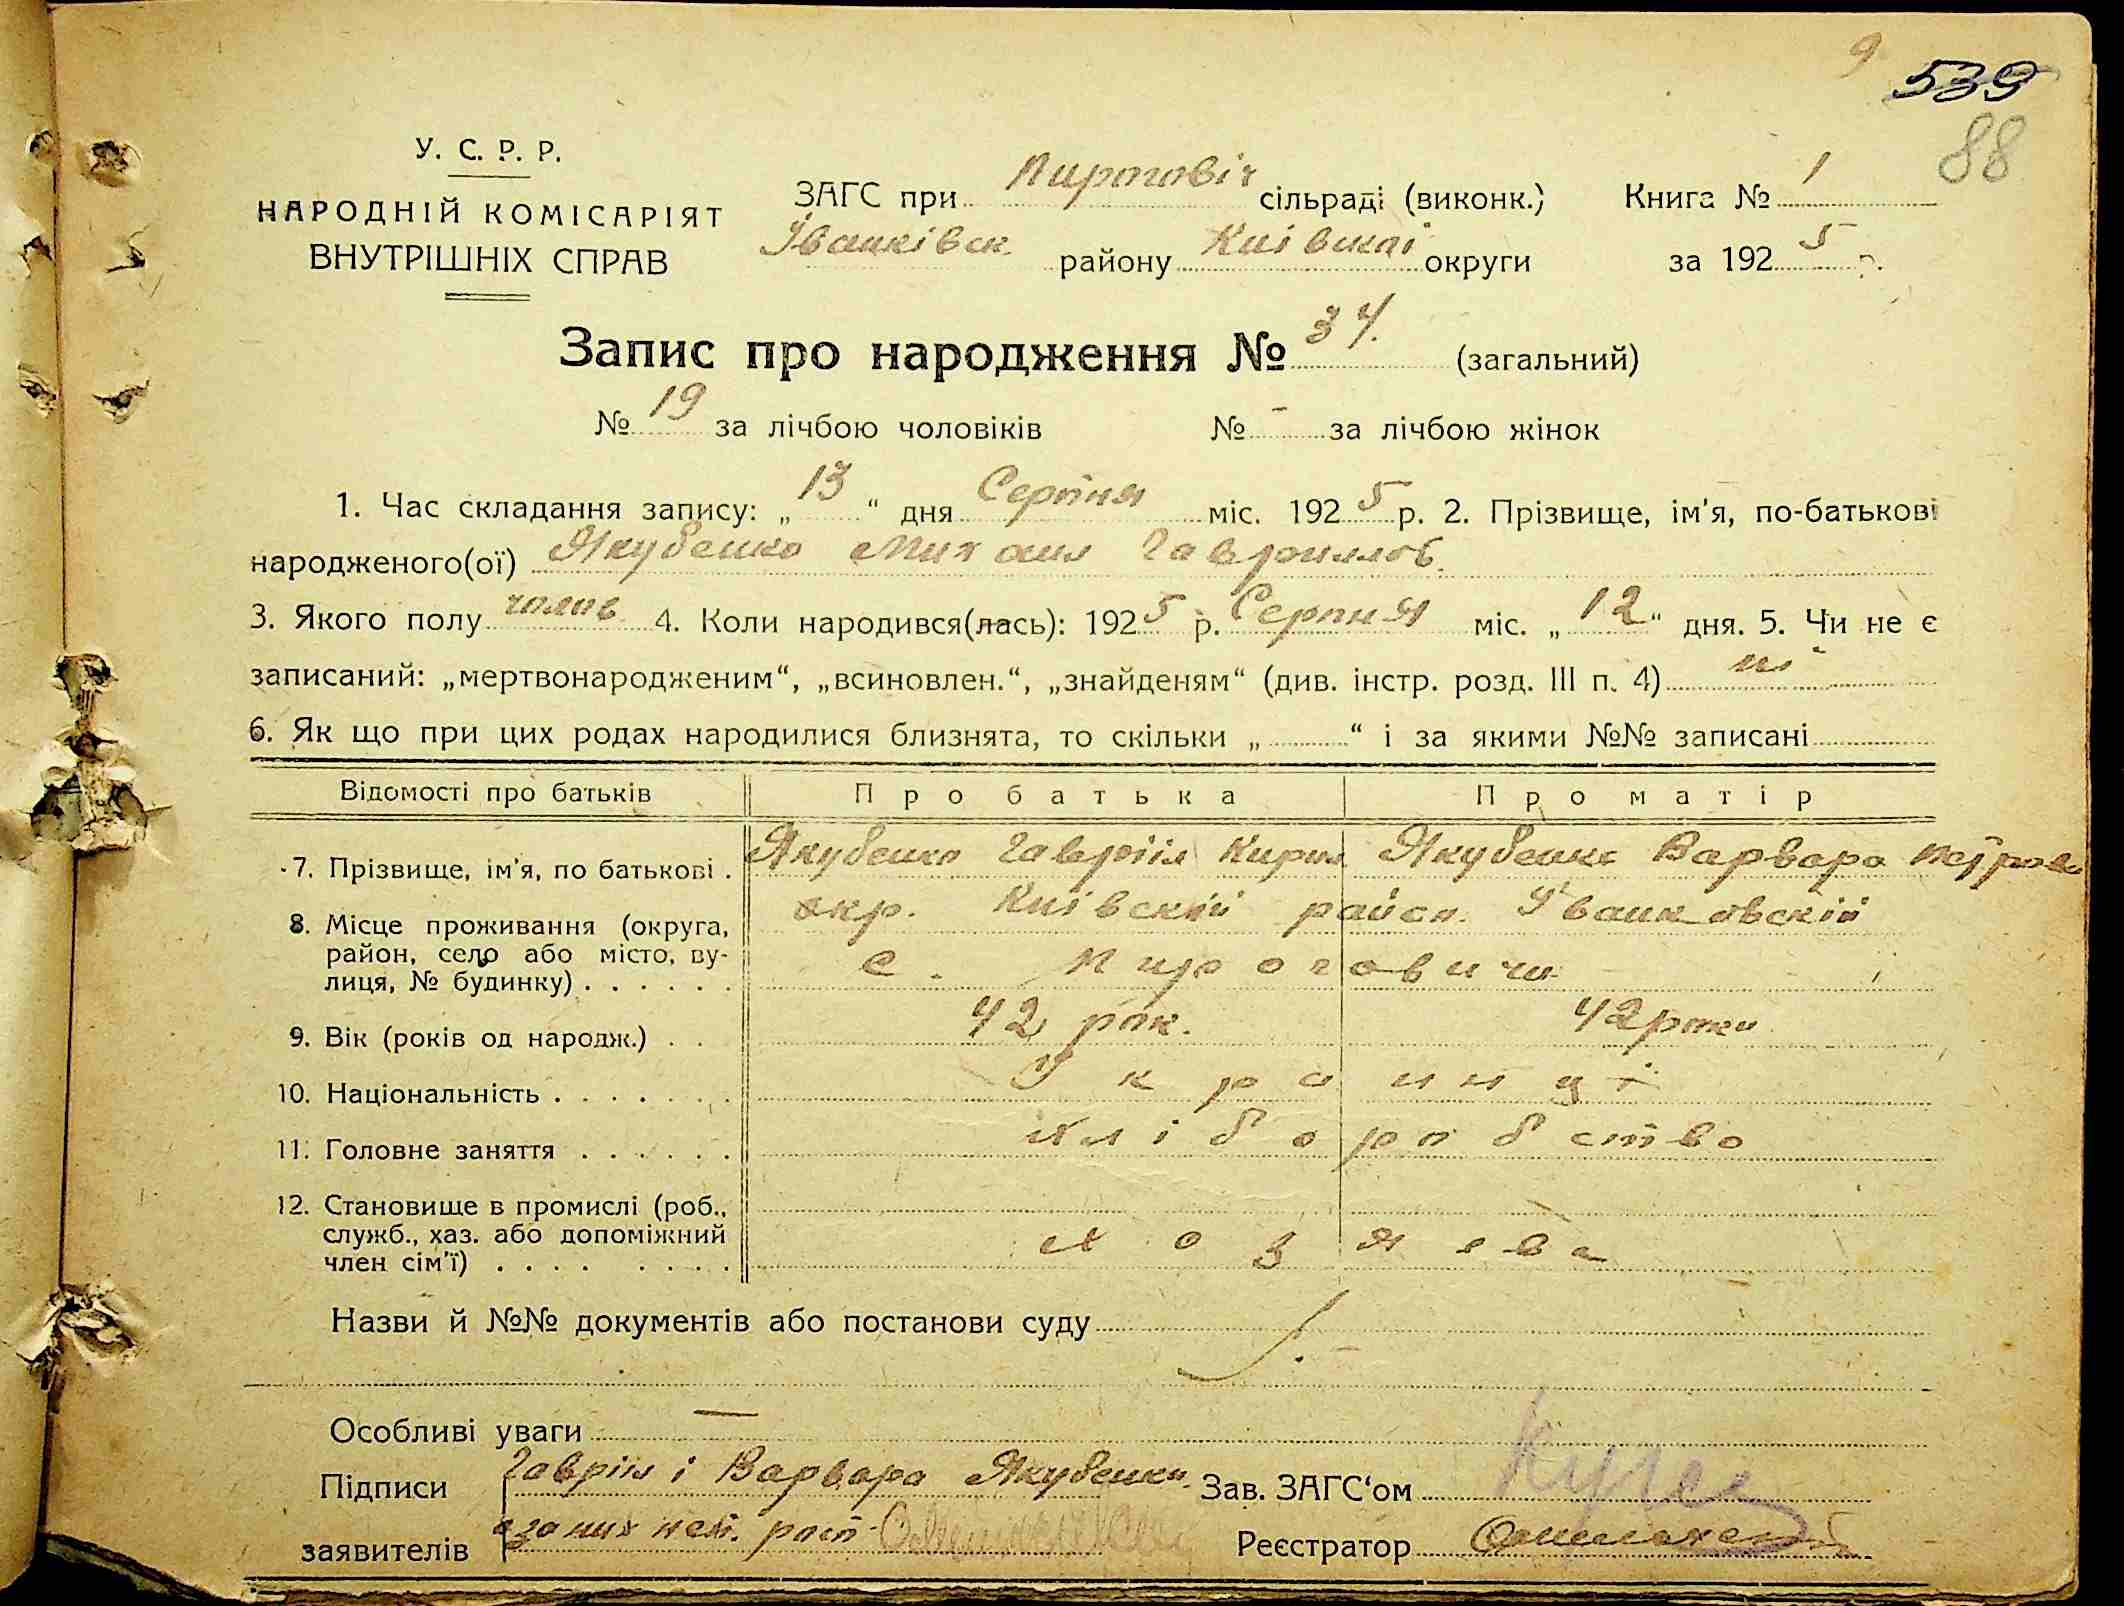 9
539
88
У. С. Р. Р.
НАРОДНІЙ КОМІСАРІЯТ
ВНУТРІШНІХ СПРАВ
ЗАГС при Пирогович сільраді (виконк.) Книга № 1
Іванківськ району Київської округи за 1925 р.
Запис про народження № 34. (загальний)
№ 19 за лічбою чоловіків № - за лічбою жінок
1. Час складання запису: „13“ дня Серпня міс. 1925 р. 2. Прізвище, ім'я, по-батькові
народженого(ої) Якубенко Михаил Гавриилов.
3. Якого полу чолов 4. Коли народився(лась): 1925 р. Серпня міс. „12“ дня. 5. Чи не є
записаний: „мертвонародженим“, „всиновлен.“, „знайденям“ (див. інстр. розд. III п. 4) ні
6. Як що при цих родах народилися близнята, то скільки „ “ і за якими №№ записані
Відомості про батьків Про батька Про матір
7. Прізвище, ім'я, по батькові . Якубенко Гавриїл Кирил Якубенко Варвара Петров
8. Місце проживання (округа, окр. Київский район. Іванковскій
район, село або місто, ву-
лиця, № будинку) . . . . . . с. Пироговичи
9. Вік (років од народж.) . . 42 рок. 42 роки
10. Національність . . . . . . . Украинці
11. Головне заняття . . . . . . Хліборобство
12. Становище в промислі (роб.,
служб., хаз. або допоміжний
член сім'ї) . . . . . . . . хозяева
Назви й №№ документів або постанови суду
Особливі уваги —
Підписи Гавриїл і Варвара Якубенки. Зав. ЗАГС'ом
заявителів за них неп. росп. Реєстратор